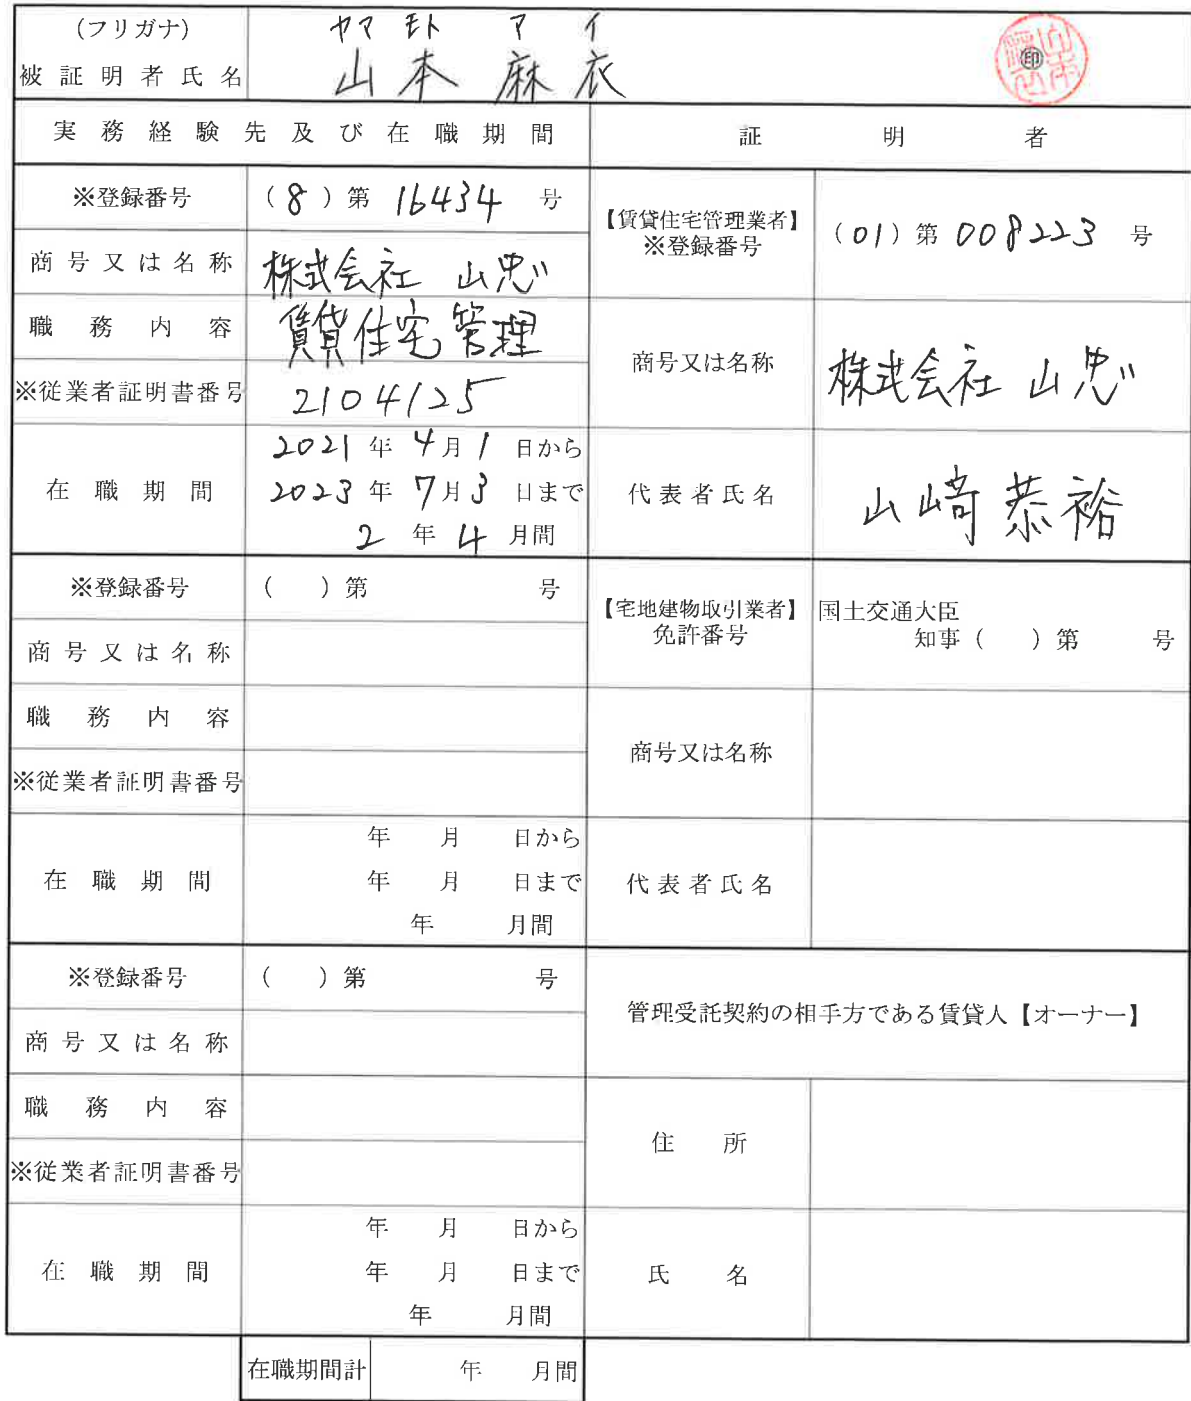 (フリガナ) ヤマモト マイ
被証明者氏名 山本 麻衣 ㊞
実務経験先及び在職期間 証明者
※登録番号 (8)第 16434 号
【賃貸住宅管理業者】
※登録番号 (01)第 008223 号
商号又は名称 株式会社 山忠
職務内容 賃貸住宅管理
商号又は名称 株式会社 山忠
※従業者証明書番号 2104125
在職期間
2021 年 4 月 1 日から
2023 年 7 月 3 日まで
2 年 4 月間
代表者氏名 山崎恭裕
※登録番号 ( )第 号
【宅地建物取引業者】
免許番号
国土交通大臣
知事( )第 号
商号又は名称
職務内容
商号又は名称
※従業者証明書番号
在職期間
年 月 日から
年 月 日まで
年 月間
代表者氏名
※登録番号 ( )第 号
管理受託契約の相手方である賃貸人【オーナー】
商号又は名称
職務内容
住所
※従業者証明書番号
在職期間
年 月 日から
年 月 日まで
年 月間
氏名
在職期間計 年 月間